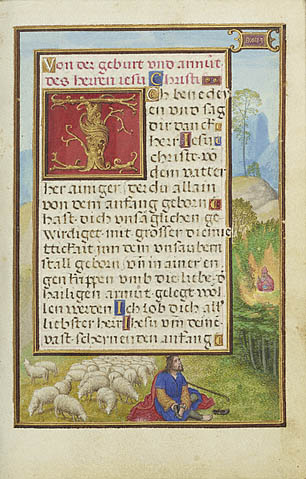 Von der geburt vnd armut
des herren iesu Christi
Ich benedey
en vnd sag
dir danck
herr Iesu
christe vo
dem vatter
her ainiger der du allain
von dem anfang geborn
hast dich vnsaglichen ge
wirdiget mit grosser diemie
ttickait jnn dem vnsaubern
stall geborn vnn in ainer en
gen krippen vmb die liebe d
hailigen armut gelegt wol
len werden Ich lob dich all
liebster herr Ihesu vm deine
vast schernenden anfang